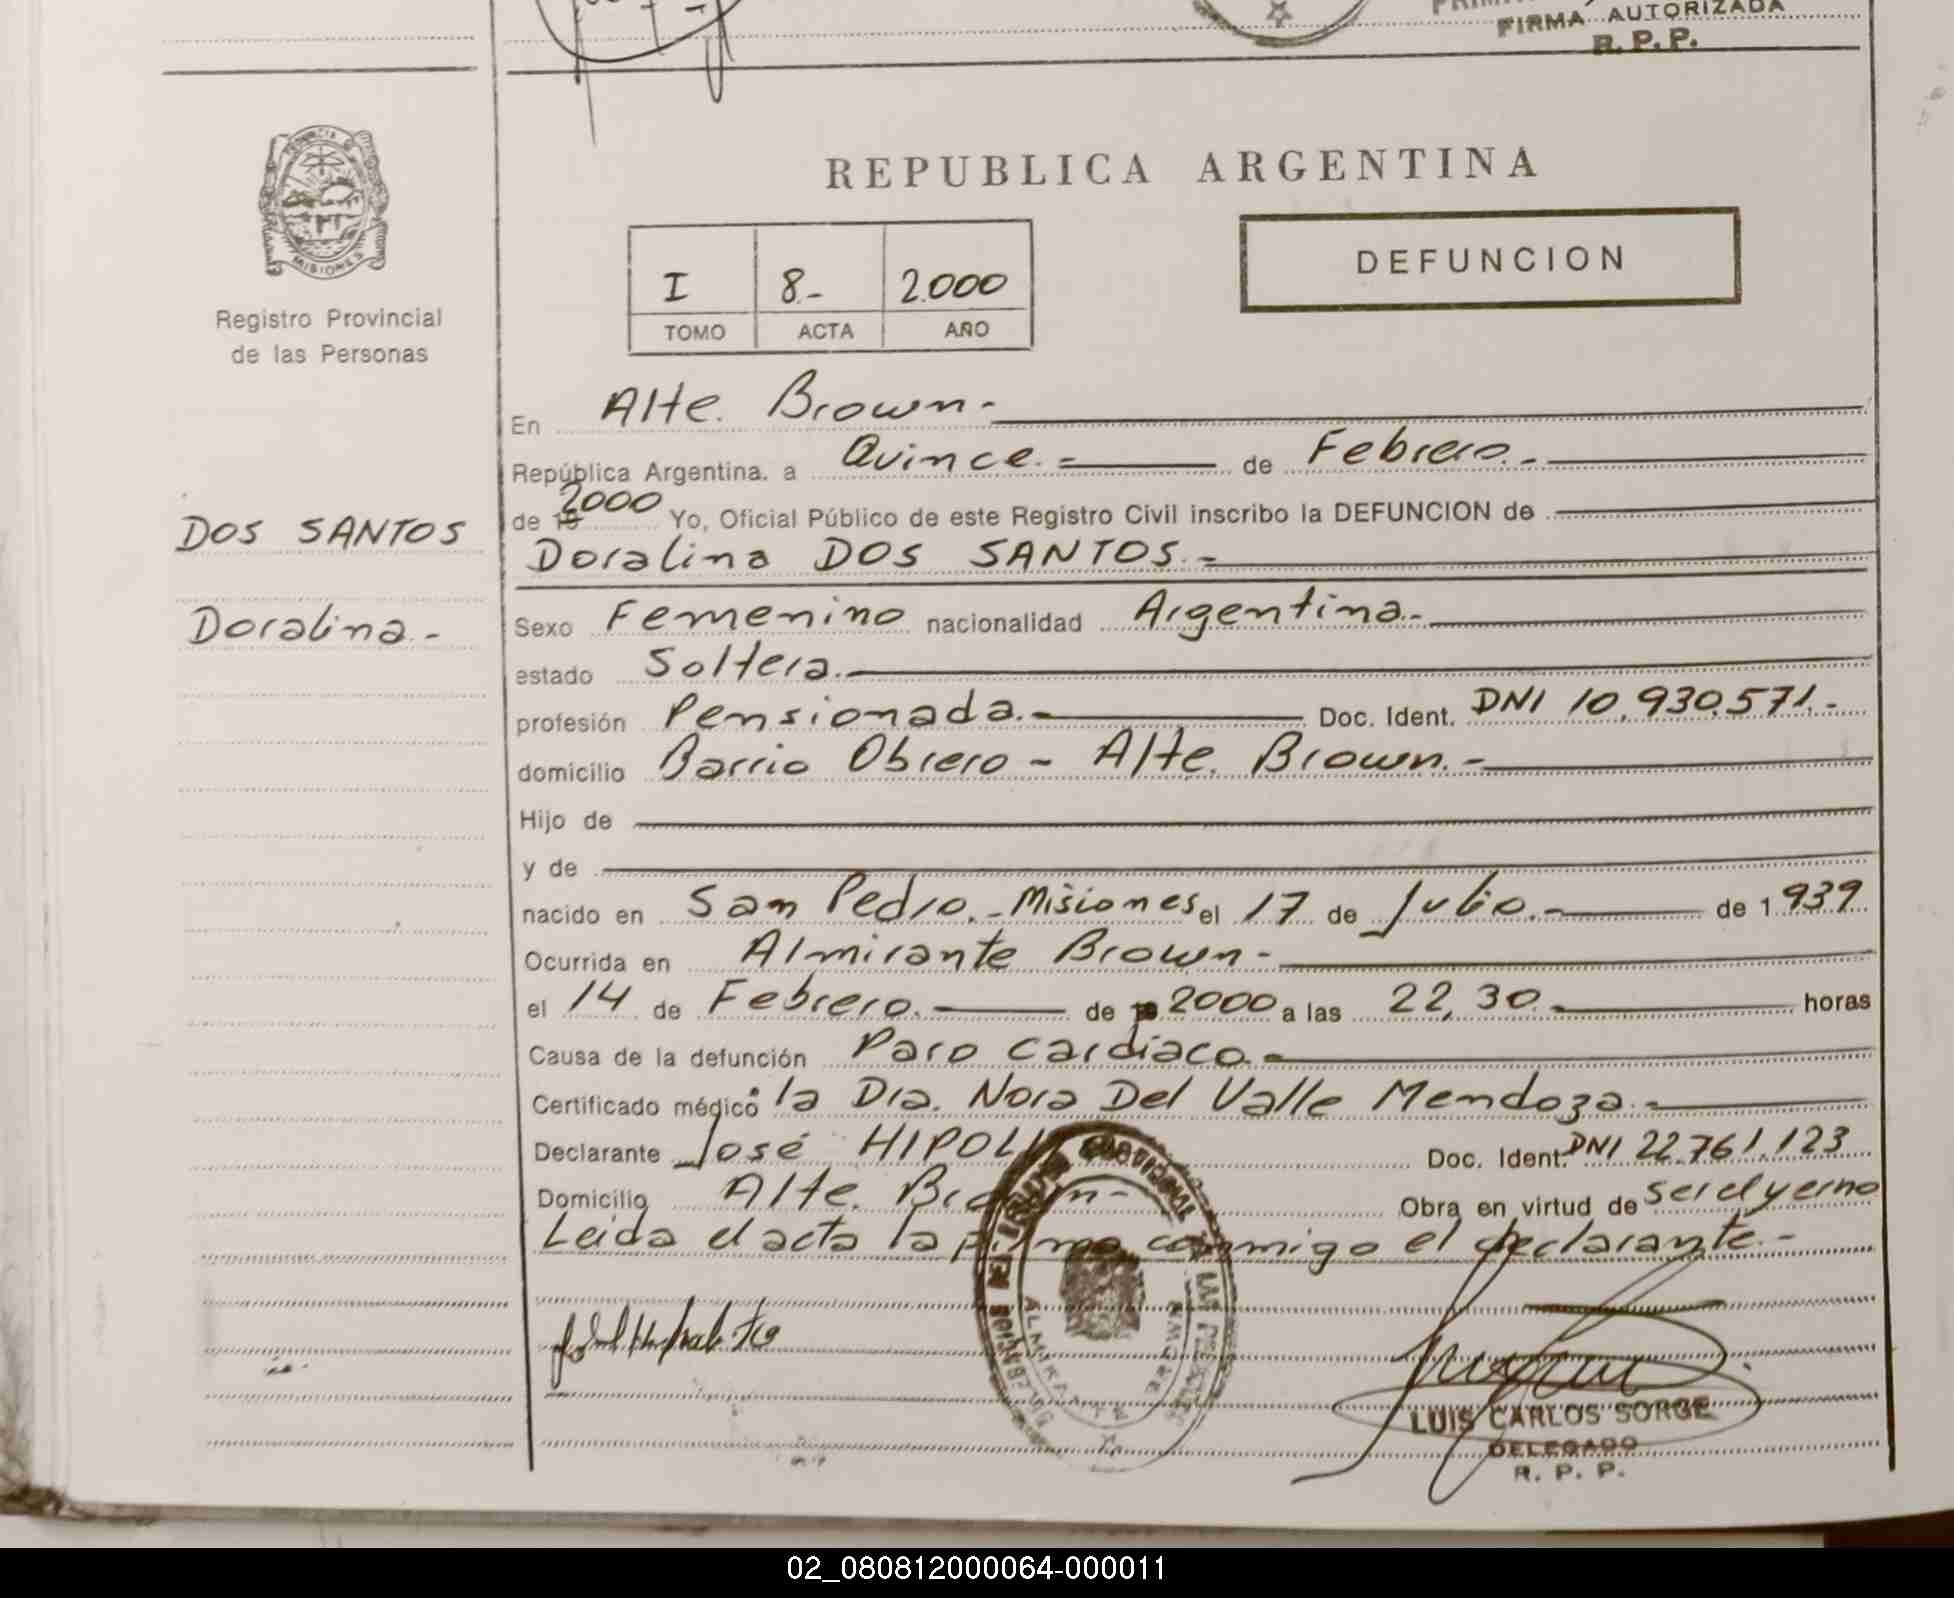 FIRMA AUTORIZADA
R. P. P.
PROVINCIA
MISIONES
Registro Provincial
de las Personas
REPUBLICA ARGENTINA
I 8.- 2.000
TOMO ACTA AÑO
DEFUNCION
En Alte. Brown.-
República Argentina. a Quince.- de Febrero.-
de 19 2000 Yo, Oficial Público de este Registro Civil inscribo la DEFUNCION de
DOS SANTOS
Doralina DOS SANTOS.-
Doralina.-
Sexo Femenino nacionalidad Argentina.-
estado Soltera.-
profesión Pensionada.- Doc. Ident. DNI 10.930.571.-
domicilio Barrio Obrero - Alte. Brown.-
Hijo de
y de
nacido en San Pedro.- Misiones el 17 de Julio.- de 1.939
Ocurrida en Almirante Brown-
el 14 de Febrero.- de 19 2000 a las 22,30 horas
Causa de la defunción Paro cardiaco.-
Certificado médico la Dra. Nora Del Valle Mendoza.-
Declarante José HIPOLI Doc. Ident. DNI 22.761.123
Domicilio Alte. Brown- Obra en virtud de ser el yerno
Leida el acta la firma conmigo el declarante.-
LUIS CARLOS SORGE
DELEGADO
R. P. P.
02_080812000064-000011